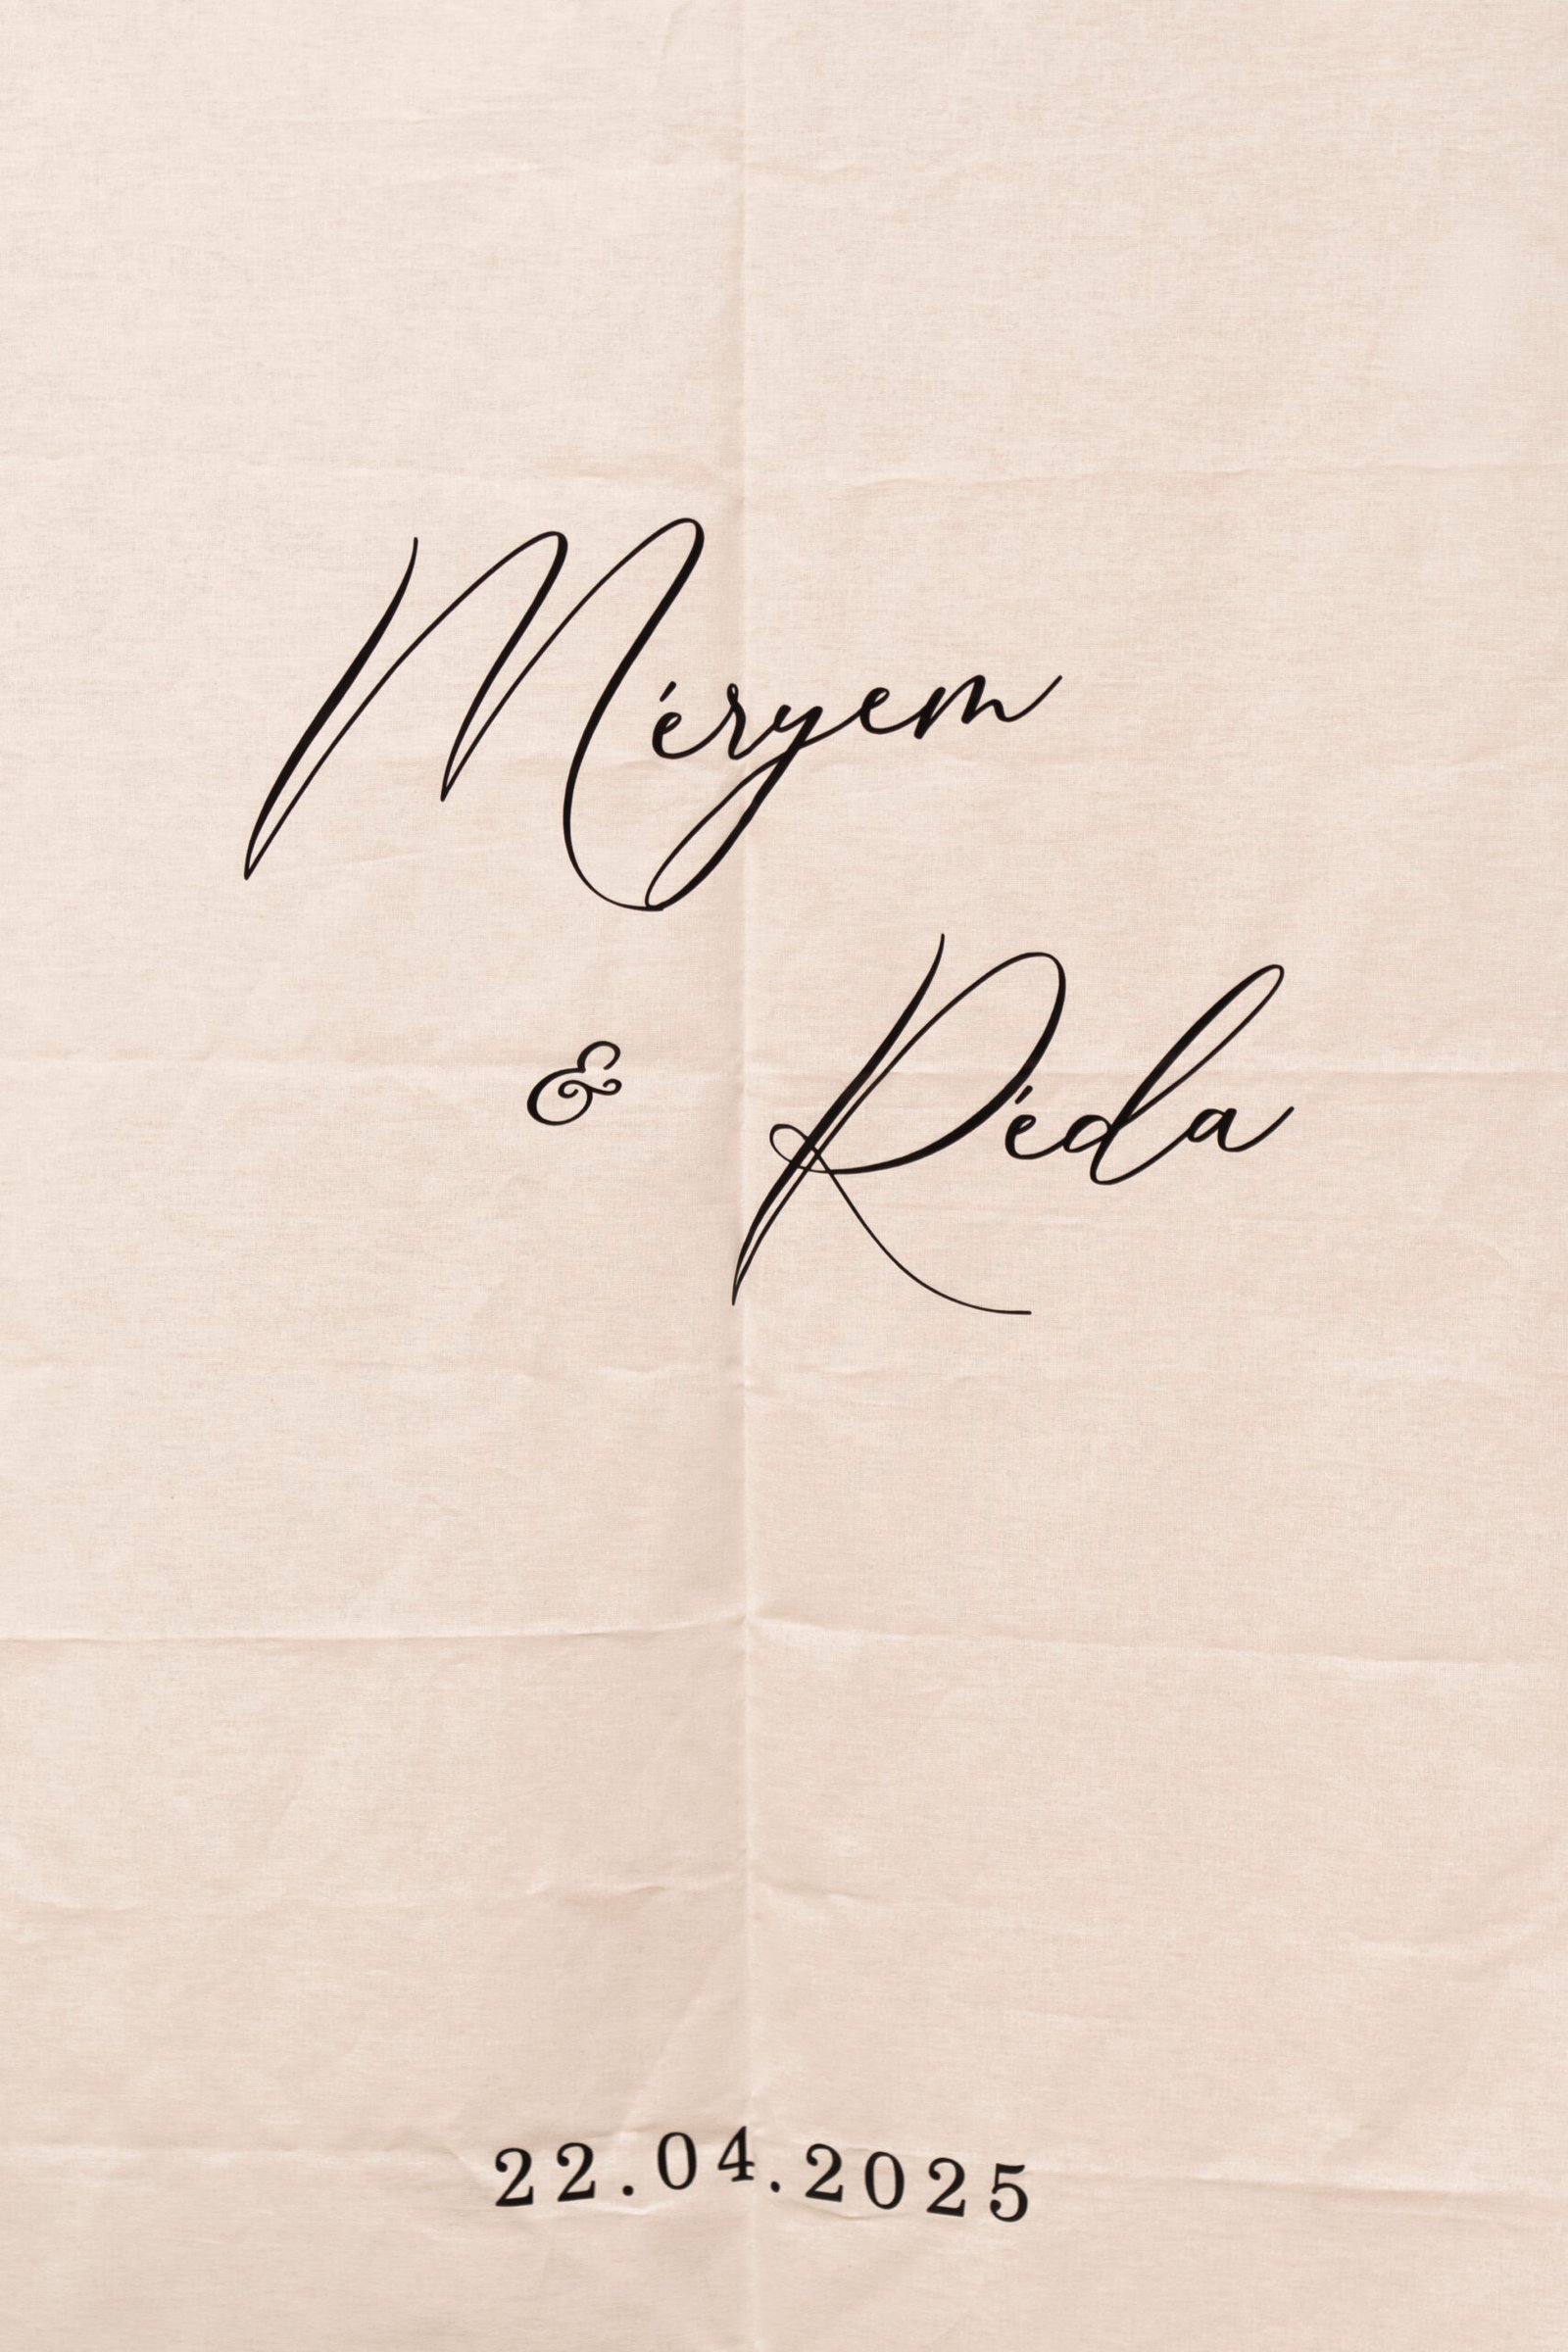 Méryem
& Réda
22.04.2025